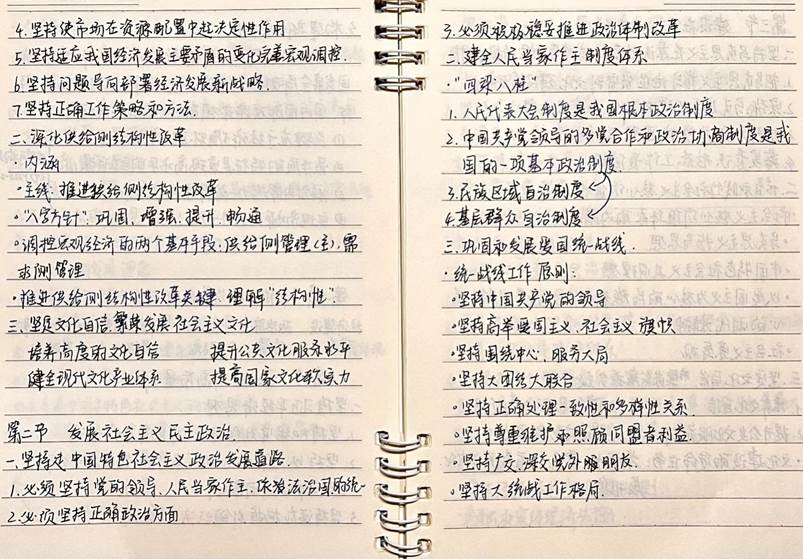 4.坚持使市场在资源配置中起决定性作用
5.坚持适应我国经济发展主要矛盾的变化完善宏观调控.
6.坚持问题导向部署经济发展新战略.
7.坚持正确工作策略和方法.
二.深化供给侧结构性改革
·内涵
·主线:推进供给侧结构性改革
·"八字方针":巩固、增强、提升、畅通
·调控宏观经济的两个基本手段:供给侧管理(主),需
求侧管理
·推进供给侧结构性改革关键 理解"结构性".
三.坚定文化自信,繁荣发展社会主义文化
培养高度的文化自信 提升公共文化服务水平
健全现代文化产业体系 提高国家文化软实力
第二节 发展社会主义民主政治.
一.坚持走中国特色社会主义政治发展道路.
1.必须坚持党的领导、人民当家作主、依法治国的统一
2.必须坚持正确政治方面
3.必须积极稳妥推进政治体制改革
二.建全人民当家作主制度体系
·"四梁八柱"
1.人民代表大会制度是我国根本政治制度
2.中国共产党领导的多党合作和政治协商制度是我
国的一项基本政治制度.
3.民族区域自治制度
4.基层群众自治制度
三.巩固和发展爱国统一战线.
·统一战线工作原则:
·坚持中国共产党的领导
·坚持高举爱国主义、社会主义旗帜
·坚持围绕中心、服务大局
·坚持大团结大联合
·坚持正确处理一致性和多样性关系.
·坚持尊重维护和照顾同盟者利益.
·坚持广交、深交党外朋友.
·坚持大统战工作格局.